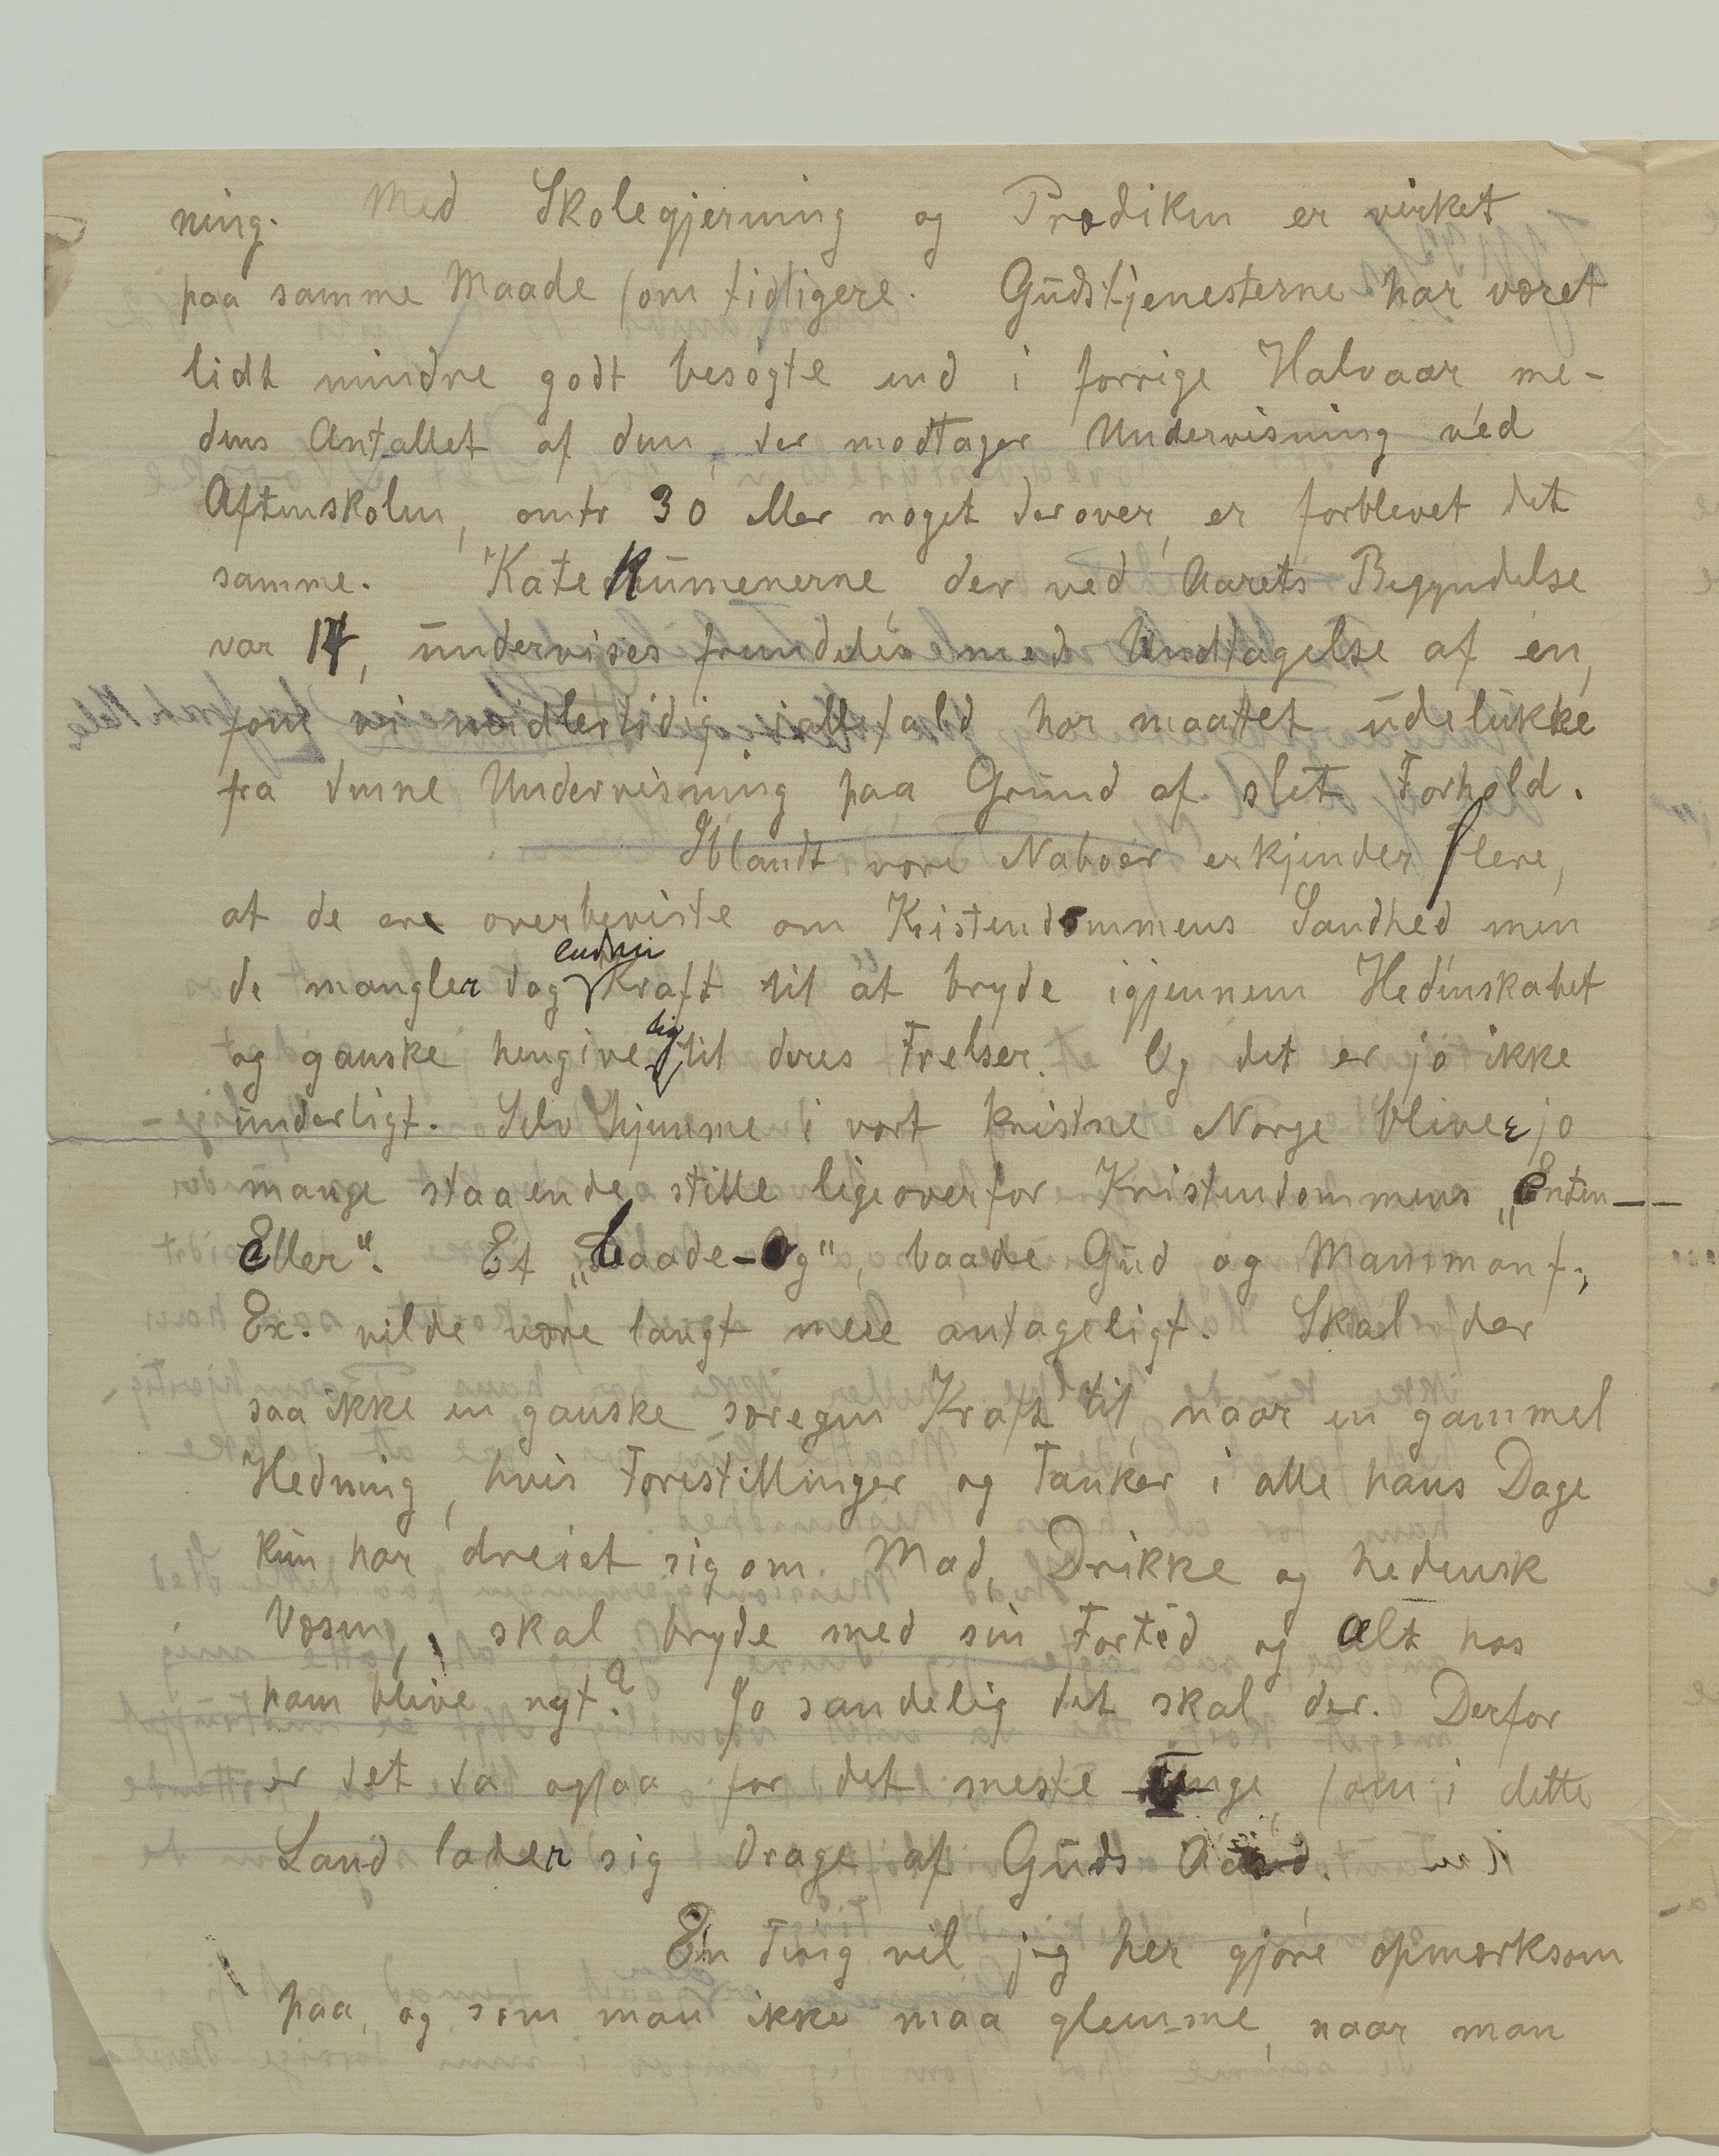 ning. Med Skolegjerning og Prædiken er virket
paa samme Maade som tidligere. Gudstjenesterne har været
lidt mindre godt besøgte end i forrige Halvaar me-
dens Antallet af dem, der modtager Undervisning ved
Aftenskolen, omtr 30 eller noget derover, er forblevet det
samme. Katekumenerne, der ved Aarets Begyndelse
var 14, undervises fremdeles med Undtagelse af en,
som vi midlertidig ialfald har maattet udelukke
fra denne Undervisning paa Grund af slet Forhold.
Iblandt vore Naboer erkjender flere,
at de ere overbeviste om Kristendommens Sandhed men
de mangler dog endnu Kraft til at bryde igjennem Hedenskabet
og ganske hengive sig til deres Frelser. Og det er jo ikke
underligt. Selv hjemme i vort kristne Norge bliver jo
mange staaende stille ligeoverfor Kristendommens „Enten—
Eller“. Et „baade-og“, baade Gud og Mammon f.
Ex. vilde være langt mere antageligt. Skal der
saa ikke en ganske særegen Kraft til, naar en gammel
Hedning, hvis Forestillinger og Tanker i alle hans Dage
kun har dreiet sig om Mad, Drikke og hedensk
Væsen, skal bryde med sin Fortid og alt hos
ham blive nyt? Jo sandelig det skal der. Derfor
er det da ogsaa for det meste unge, som i dette
Land lader sig drage af Guds Aand.
En Ting vil jeg her gjøre opmærksom
paa, og som man ikke maa glemme, naar man